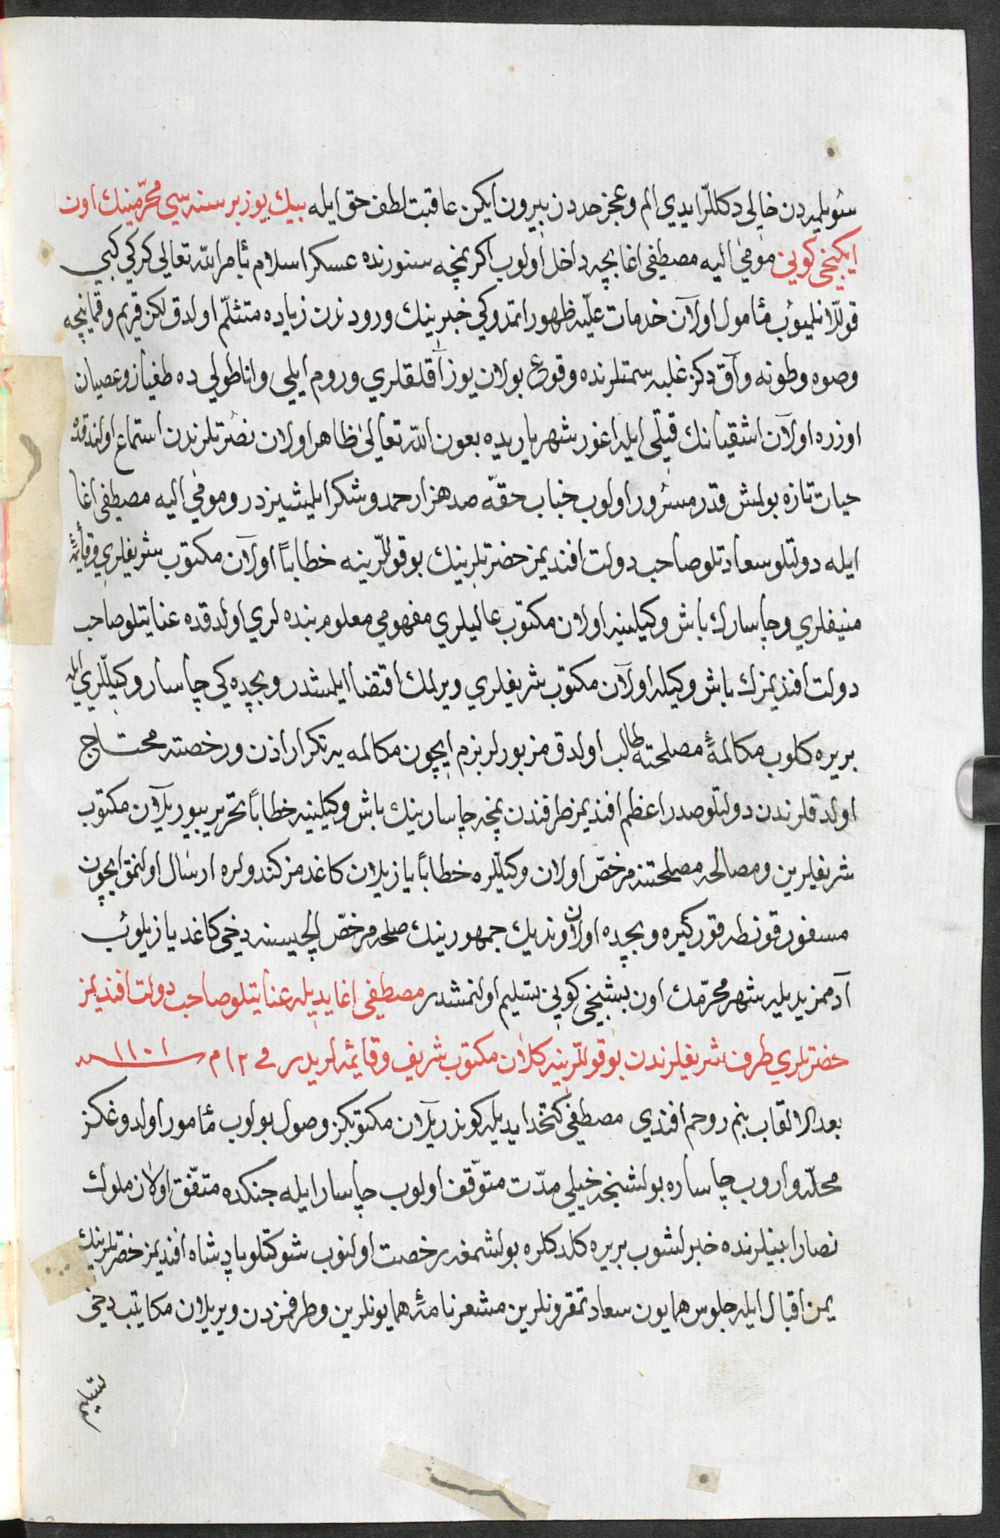 سويلمه‌دن خالي دكللر ايدي الم وعجز حددن بيرون ايكن عاقبت لطف حق ايله بيك يوز بر سنه‌سي محرّمينك اون
ايكنجي كوني مومي اليه مصطفى اغا بچه داخل اولوب اكر بچه سنورنده عسكر اسلام بأمر الله تعالى كركي كبي
قوللانلميوب مأمول اولان خدمات عليّه ظهور ايتمدوكي خبرينك ورودندن زياده متألّم اولدق لكن قريم وقمانيچه
وصوه وطونه وآق دكز غلبه سمتلرنده وقوع بولان يوز آقلقلري وروم ايلي واناطولي ده طغيان وعصيان
اوزره اولان اشقيانك قتلي ايله اغور شهرياريده بعون الله تعالى ظاهر اولان نصرتلرندن استماع اولندقده
حيات تازه بولمش قدر مسرور اولوب جناب حقّه صد هزار حمد وشكر ايلمشيزدر ومومي اليه مصطفى اغا
ايله دولتلو سعادتلو صاحب دولت افنديمز حضرتلرينك بو قوللرينه خطاباً اولان مكتوب شريفلري وقائمهٔ
منيفلري وچاسارك باش وكيلنه اولان مكتوب عاليلري مفهومي معلوم بنده لري اولدقده عنايتلو صاحب
دولت افنديمزك باش وكيله اولان مكتوب شريفلري ويرلمك اقتضا ايلمشدر وبچده كي چاسار وكيللري ايله
بر يره كلوب مكالمهٔ مصلحته طالب اولدق مزبورلر بزم ايچون مكالمه يه تكرار اذن ورخصته محتاج
اولدقلرندن دولتلو صدر اعظم افنديمز طرفندن نمچه چاسارينك باش وكيلنه خطاباً تحرير بيوريلان مكتوب
شريفلرين ومصالحه مصلحتنه مرخّص اولان وكيللره خطاباً يازيلان كاغدمز كندولره ارسال اولنمق ايچون
مسفور قونطه قورتيره وبچده اولان ونديك جمهورينك صلحه مرخّص ايلچيسنه دخي كاغد يازيلوب
آدممز يديله شهر محرّمك اون بشنجي كوني تسليم اولنمشدر مصطفى اغا يديله عنايتلو صاحب دولت افنديمز
حضرتلري طرف شريفلرندن بو قوللرينه كلان مكتوب شريف وقائمه لريدر في ١٢ م سنه ١١٠١
بعد الالقاب بنم روحم افندي مصطفى كتخدا يديله كوندريلان مكتوبكز وصول بولوب مأمور اولدوغكز
محلّه واروب چاساره بولشنجه خيلي مدّت متوقّف اولوب چاسار ايله جنكده متفّق اولان ملوك
نصارا بينلرنده خبرلشوب بر يره كلدكلره بولشمغه رخصت اولنوب شوكتلو پادشاه افنديمز حضرتلرينك
يمن اقبال ايله جلوس همايون سعادتمقرونلرين مشعر نامهٔ همايونلرين وطرفمزدن ويريلان مكاتيب دخي